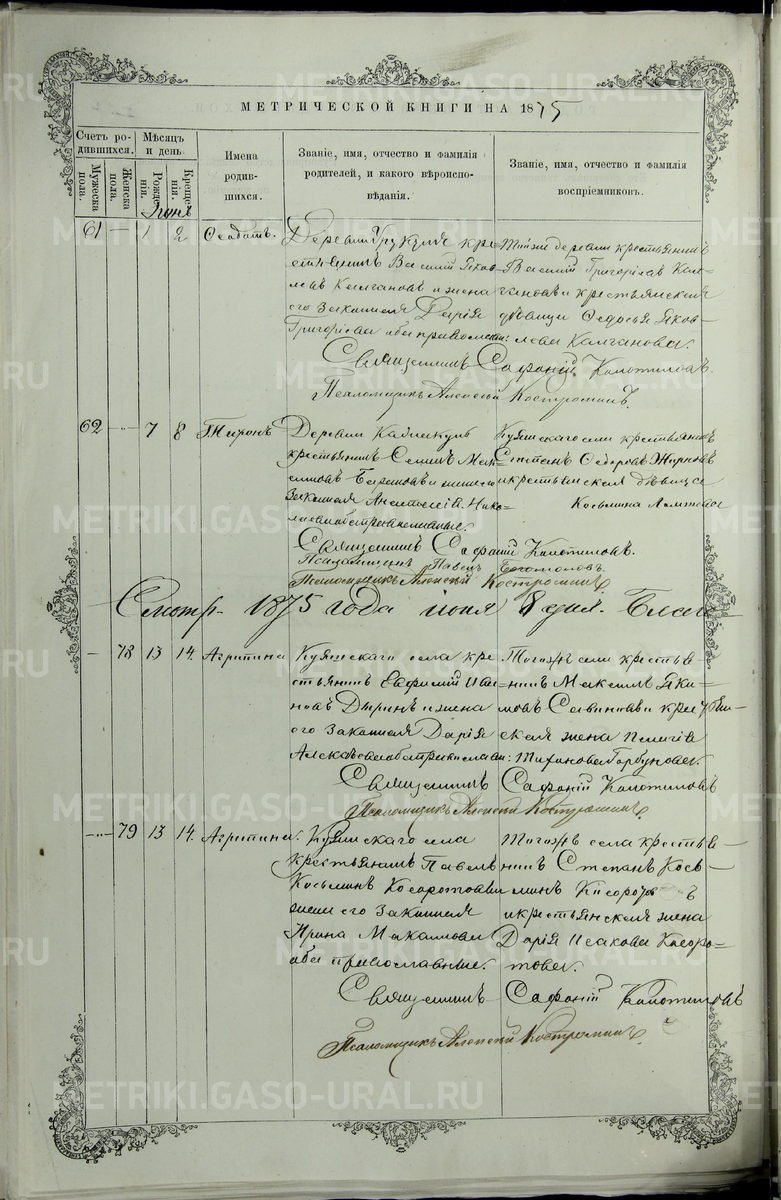 МЕТРИЧЕСКОЙ КНИГИ НА 1875
Счетъ ро-
дившихся.
Мужеска пола.
Женска пола.
Мѣсяцъ
и день.
Рожде-
нія.
Креще-
нія.
Имена
родив-
шихся.
Званіе, имя, отчество и фамилія
родителей, и какого вѣроиспо-
вѣданія.
Званіе, имя, отчество и фамилія
воспріемниковъ.
Іюнь
61 — 1 2 Ѳеодотъ.
Деревни кре-
стьянинъ Василій Яков-
левъ Калгановъ и жена
его законная Дарія
Григорьева оба православн:
Той же деревни крестьянинъ
Василій Григорьевъ Кал-
гановъ и крестьянская
дѣвица Ѳедосья Яков-
лева Калганова.
Священникъ Сафоній Капотиловъ.
Псаломщикъ Алексѣй Костроминъ.
62 — 7 8 Тиронъ
Деревни
крестьянинъ Семенъ Мак-
симовъ и жена его
законная Анастасія Нико-
лаева оба православные.
Куяшскаго села крестьянинъ
Степанъ Ѳедоровъ Жирновъ
и крестьянская дѣвица
Косьмина
Священникъ Сафоній Капотиловъ.
Псаломщикъ Павелъ Богомоловъ.
Псаломщикъ Алексѣй Костроминъ
Смотр. 1875 года іюня 8 дня. Благо
— 78 13 14. Агрипина
Куяшскаго села кре-
стьянинъ Евфимій Ива-
новъ и жена
его законная Дарія
Алексѣева оба православн:
Тогожъ села крестья-
нинъ Максимъ Яки-
мовъ Савиновъ и крестьян-
ская жена Пелагія
Тиханова Горбунова.
Священникъ Сафоній Капотиловъ
Псаломщикъ Алексѣй Костроминъ.
— 79 13 14. Агрипина.
Куяшскаго села
крестьянинъ Павелъ
Косьминъ Косоротовъ и
жена его законная
Ирина Макамова
оба православные.
Тогожъ села крестья-
нинъ Степанъ Кось-
минъ Косоротовъ
и крестьянская жена
Дарія Исакова Косоро-
това.
Священникъ Сафоній Капотиловъ
Псаломщикъ Алексѣй Костроминъ.
METRIKI.GASO-URAL.RU